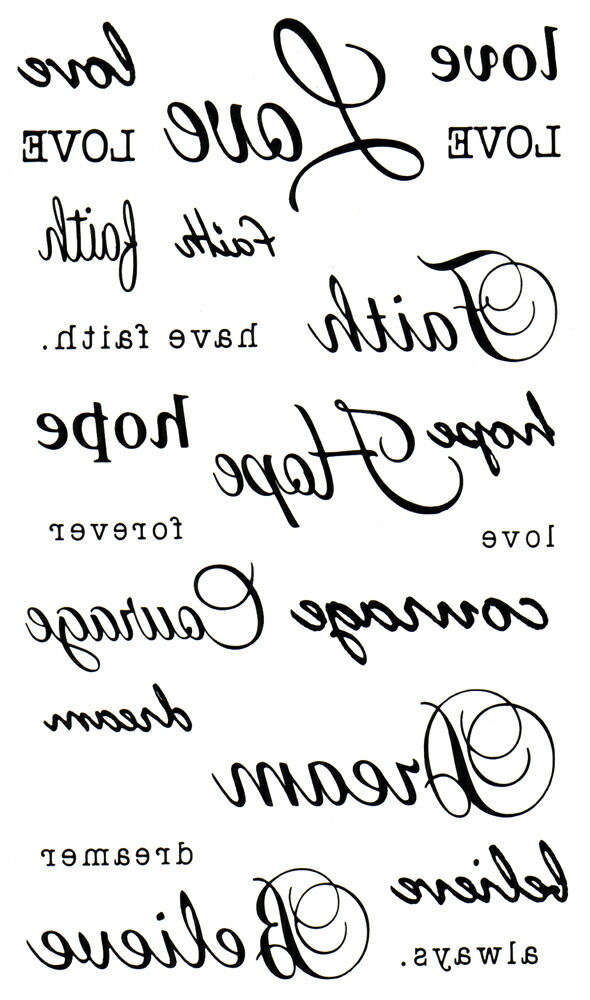 love
Love
love
LOVE
LOVE
faith
faith
Faith
have faith.
hope
Hope
hope
forever
love
Courage
courage
dream
Dream
dreamer
believe
Believe
always.